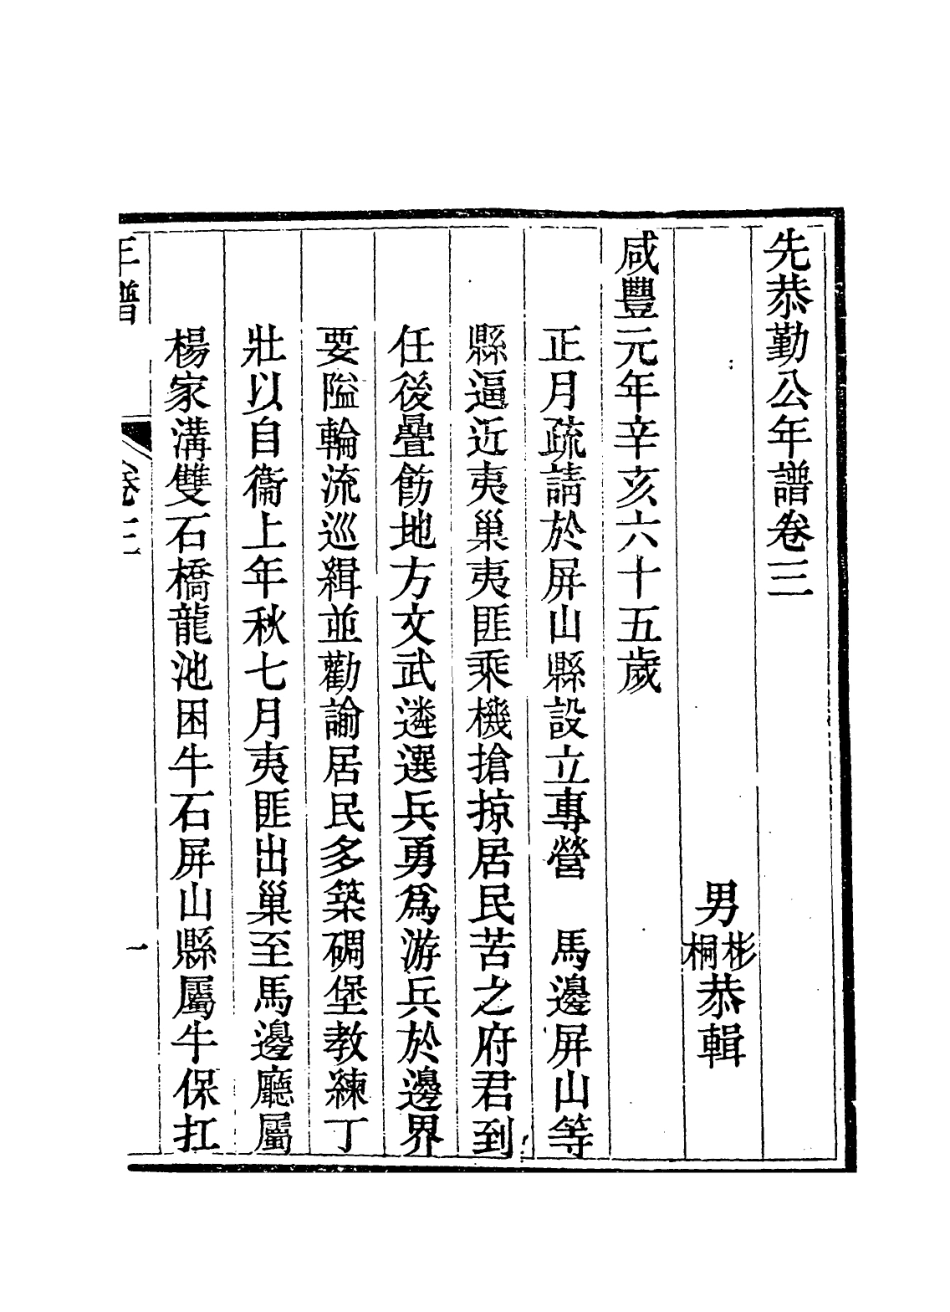 先恭勤公年譜卷三
男彬桐恭輯
咸豐元年辛亥六十五歲
正月疏請於屏山縣設立專營　馬邊屏山等
縣逼近夷巢夷匪乘機搶掠居民苦之府君到
任後疊飭地方文武遴選兵勇爲游兵於邊界
要隘輪流巡緝並勸諭居民多築碉堡教練丁
壯以自衞上年秋七月夷匪出巢至馬邊廳屬
楊家溝雙石橋龍池困牛石屏山縣屬牛保扛
年譜　卷三　一